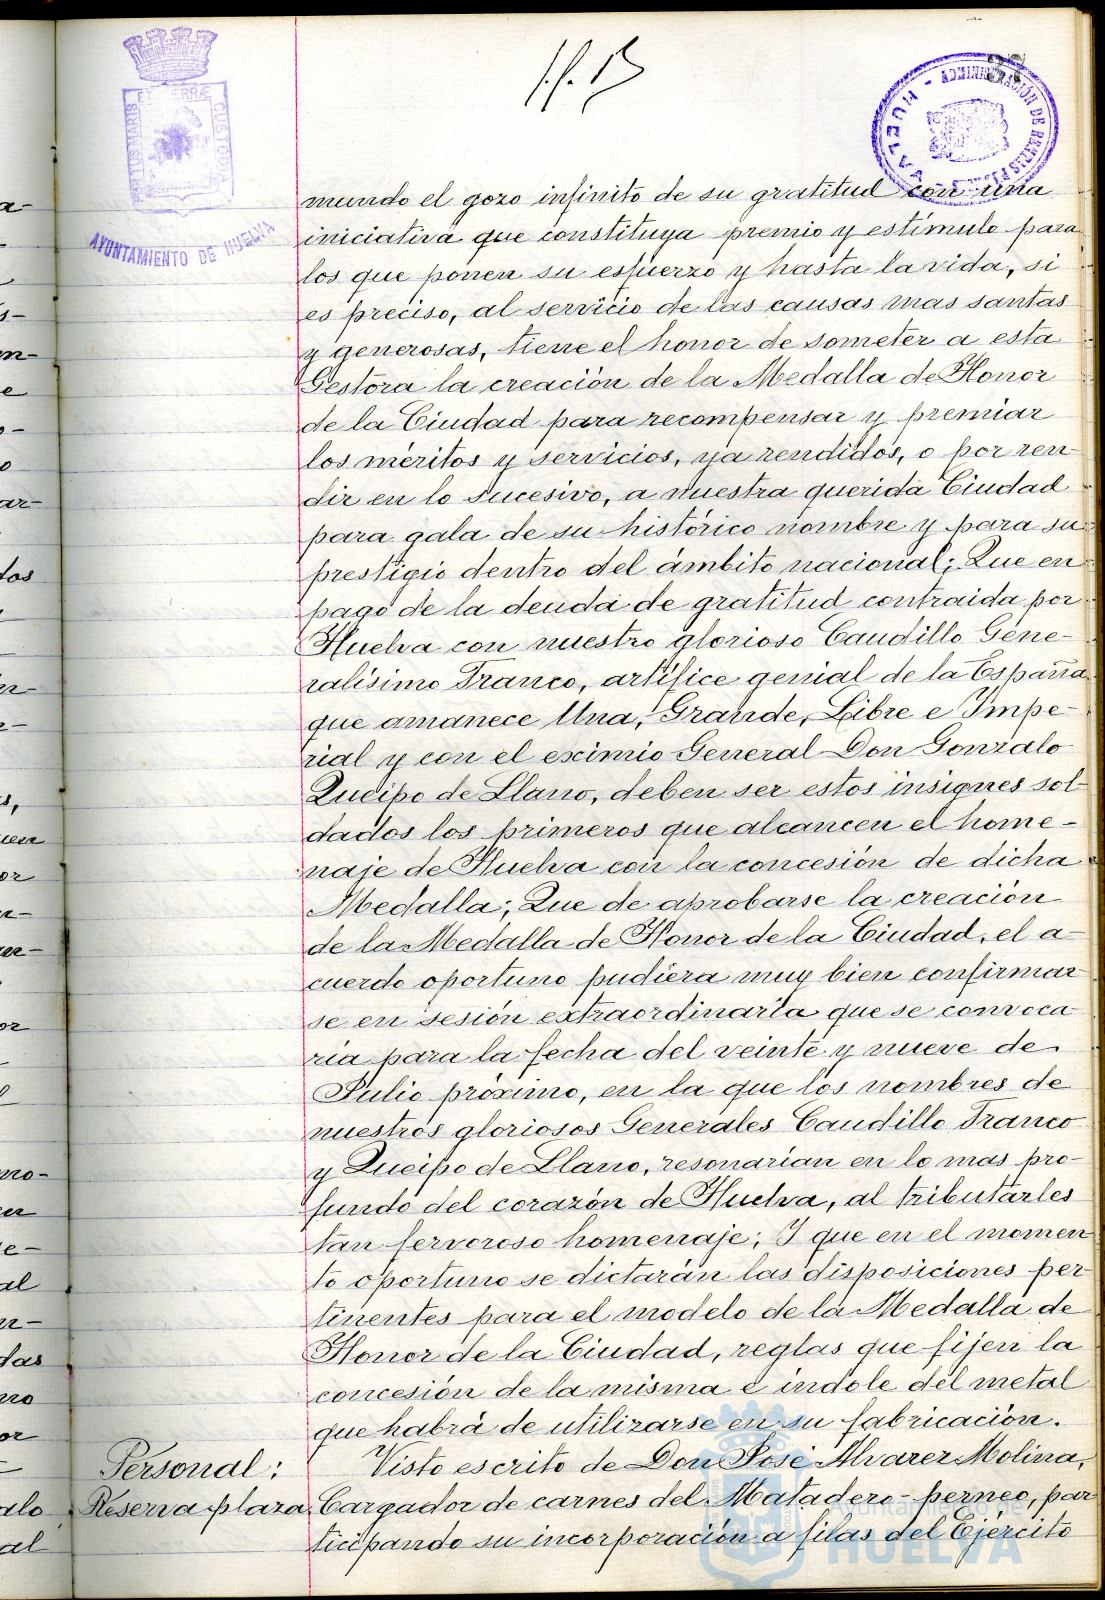 37
AYUNTAMIENTO DE HUELVA
mundo el gozo infinito de su gratitud con una
iniciativa que constituya premio y estímulo para
los que ponen su esfuerzo y hasta la vida, si
es preciso, al servicio de las causas mas santas
y generosas, tiene el honor de someter a esta
Gestora la creación de la Medalla de Honor
de la Ciudad para recompensar y premiar
los méritos y servicios, ya rendidos, o por ren-
dir en lo sucesivo, a nuestra querida Ciudad
para gala de su histórico nombre y para su
prestigio dentro del ámbito nacional; Que en
pago de la deuda de gratitud contraida por
Huelva con nuestro glorioso Caudillo Gene-
ralísimo Franco, artífice genial de la España
que amanece Una, Grande, Libre e Impe-
rial y con el eximio General Don Gonzalo
Queipo de Llano, deben ser estos insignes sol-
dados los primeros que alcancen el home-
naje de Huelva con la concesión de dicha
Medalla; Que de aprobarse la creación
de la Medalla de Honor de la Ciudad, el a-
cuerdo oportuno pudiera muy bien confirmar
se en sesión extraordinaria que se convoca
ria para la fecha del veinte y nueve de
Julio próximo, en la que los nombres de
nuestros gloriosos Generales Caudillo Franco
y Queipo de Llano, resonarían en lo mas pro-
fundo del corazón de Huelva, al tributárles
tan fervoroso homenaje; Y que en el momen
to oportuno se dictarán las disposiciones per-
tinentes para el modelo de la Medalla de
Honor de la Ciudad, reglas que fijen la
concesión de la misma é índole del metal
que habrá de utilizarse en su fabricación.
Personal: Visto escrito de Don José Alvarez Molina,
Reserva plaza Cargador de carnes del Matadero-perneo, par
ticipando su incorporación a filas del Ejército
Ayuntamiento de
HUELVA